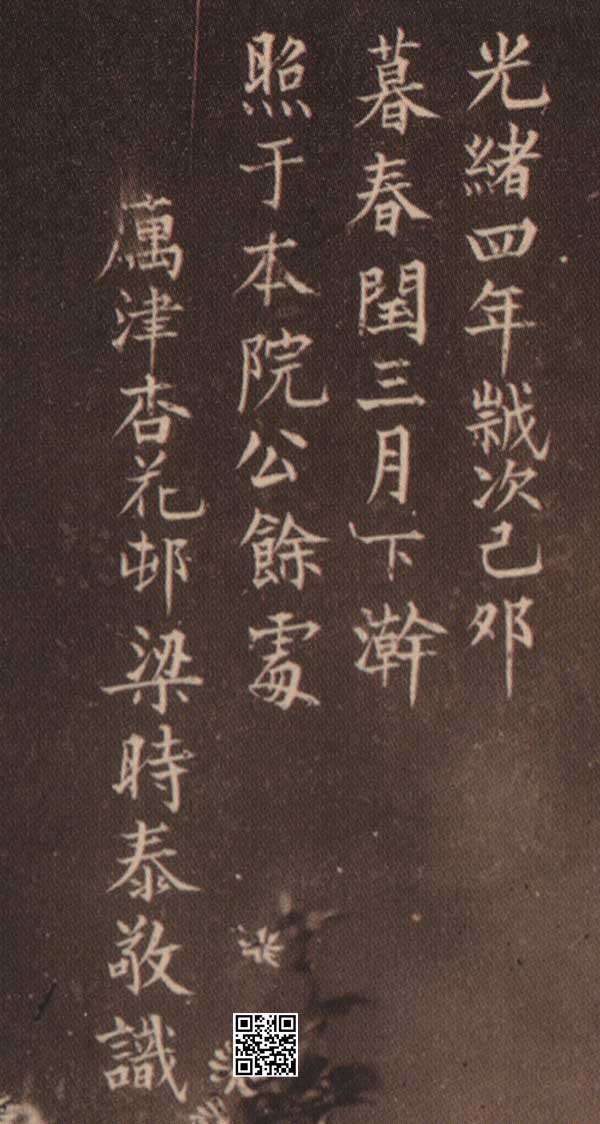 光緒四年歲次己卯
暮春閏三月下澣
照于本院公餘處
厲津杏花邨梁時泰敬識